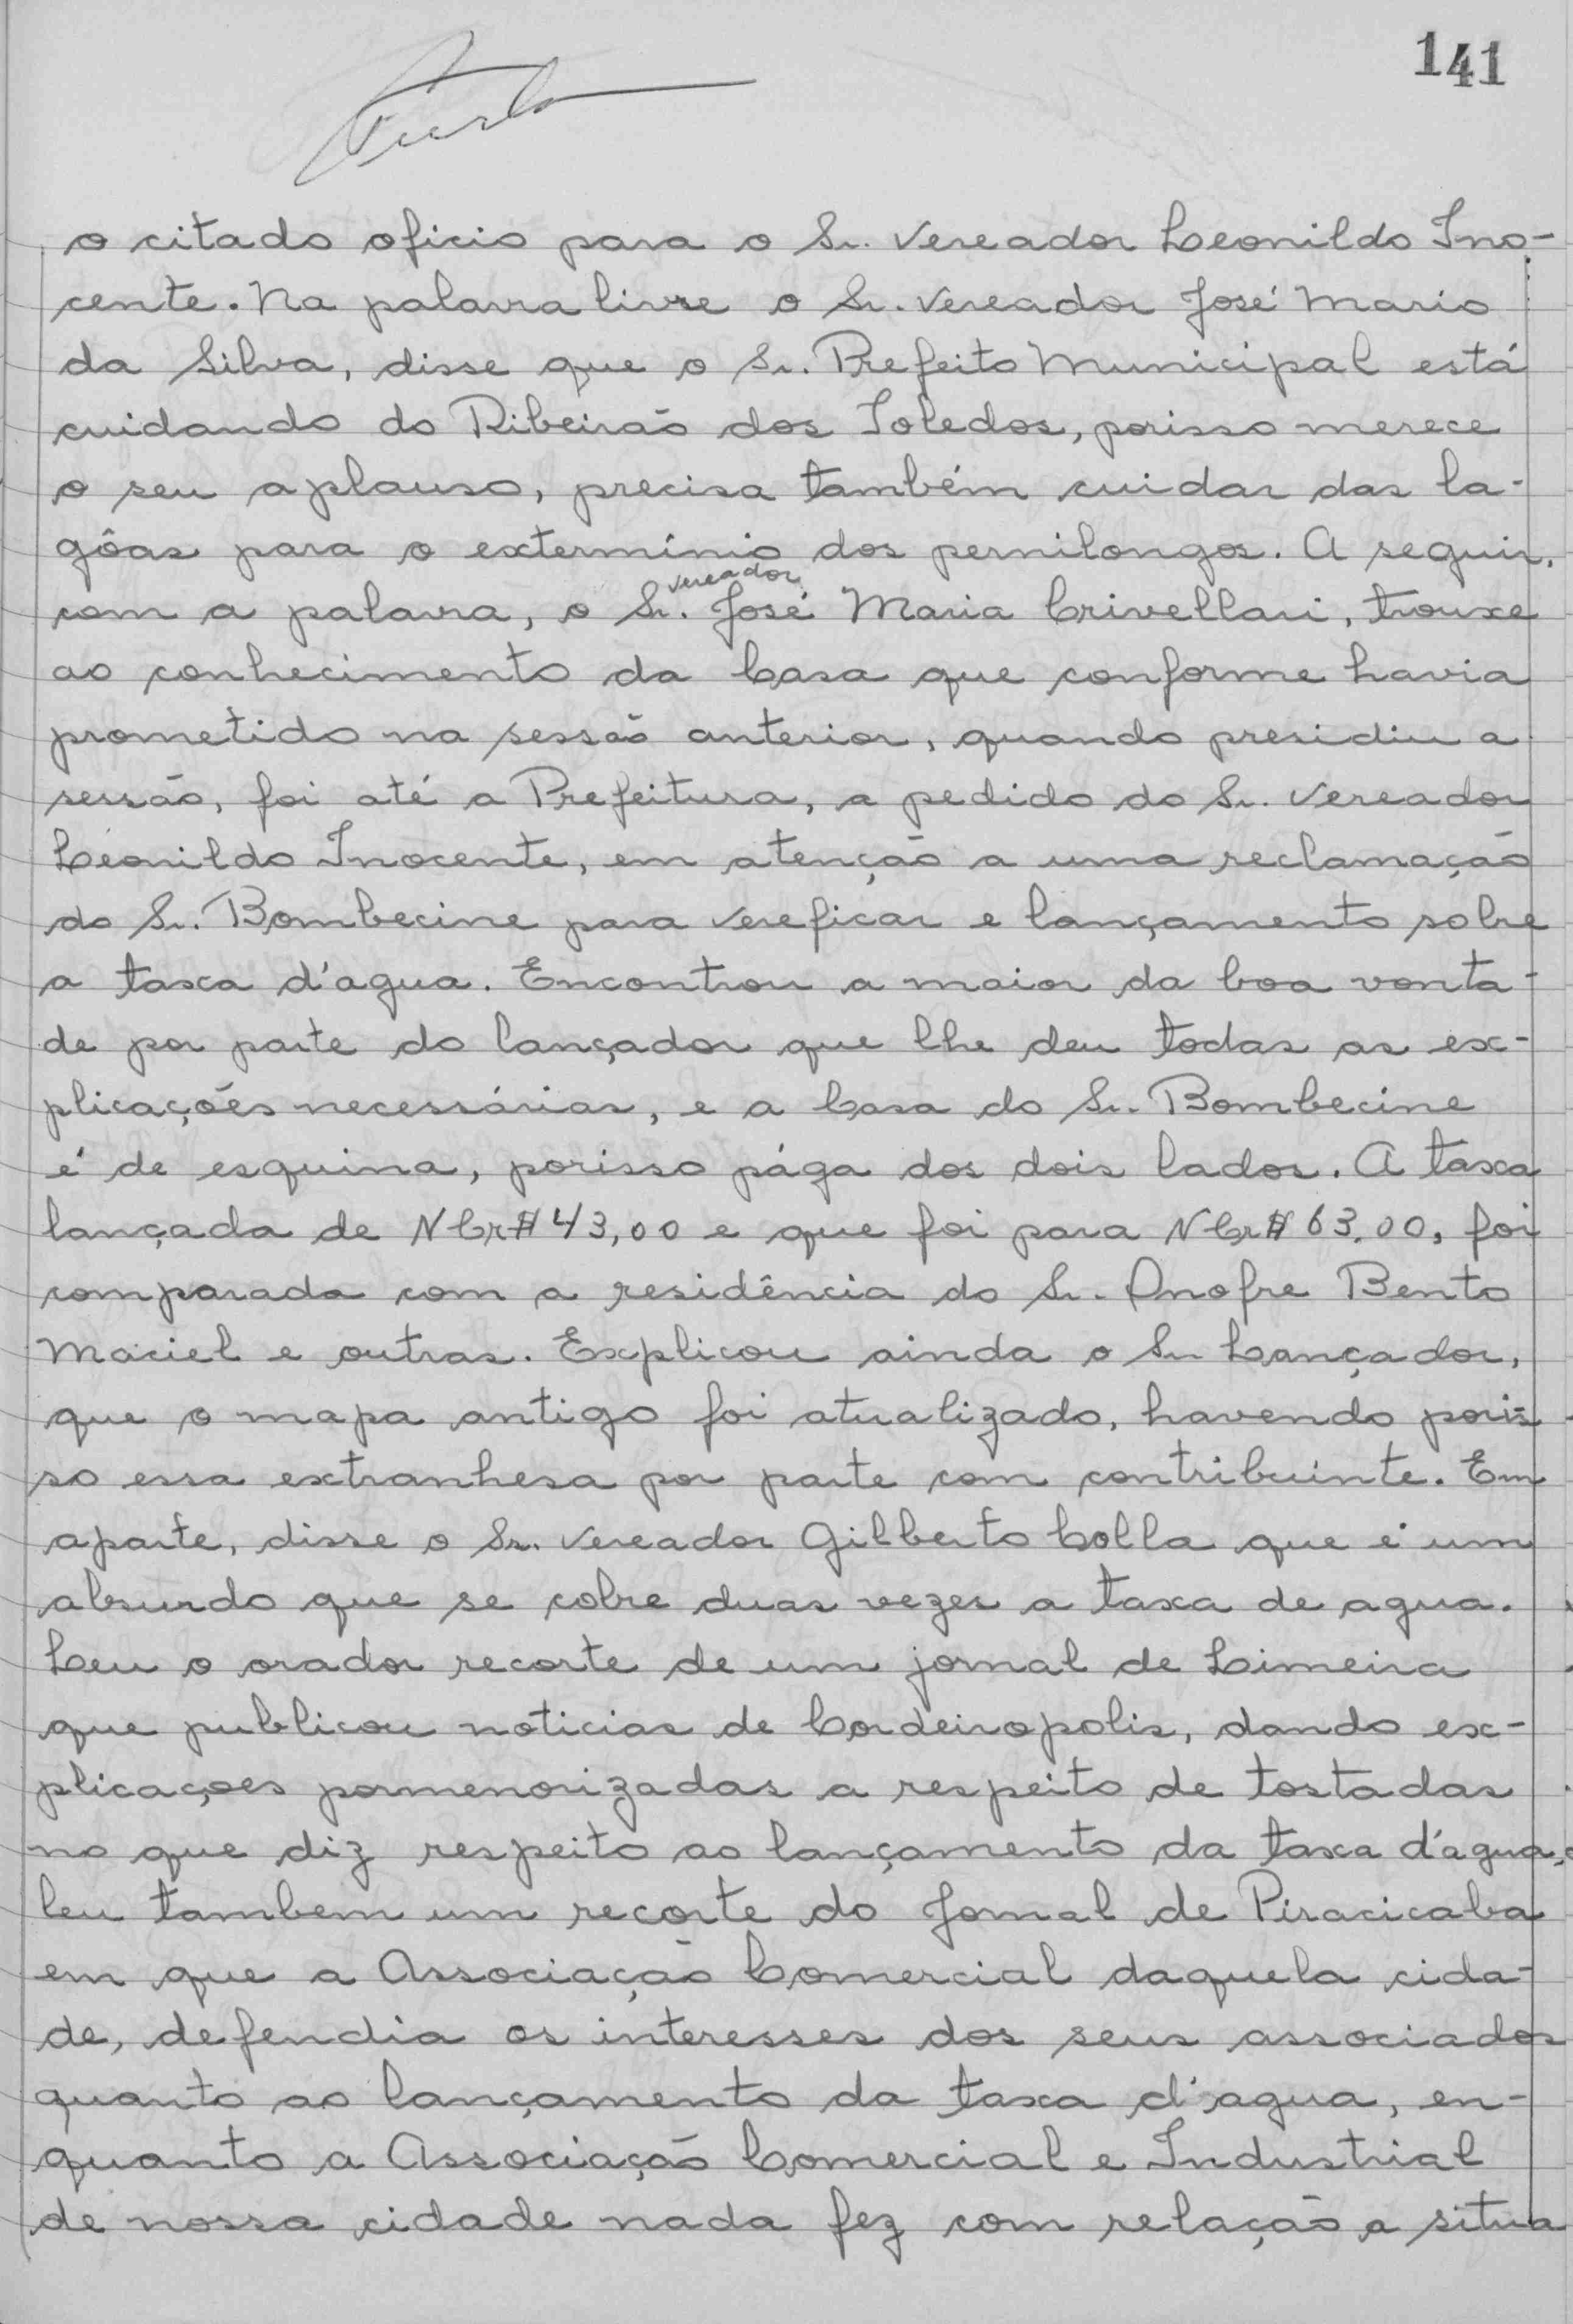 141
o citado oficio para o Sr. Vereador Leonildo Ino-
cente. Na palavra livre o Sr. Vereador José Mario
da Silva, disse que o Sr. Prefeito Municipal está
cuidando do Ribeirão dos Toledos, porisso merece
o seu aplauso, precisa também cuidar das la-
gôas para o extermínio dos pernilongos. A seguir,
com a palavra, o Sr. vereador José Maria Crivellari, trouxe
ao conhecimento da Casa que conforme havia
prometido na sessão anterior, quando presidiu a
sessão, foi até a Prefeitura, a pedido do Sr. Vereador
Leonildo Inocente, em atenção a uma reclamação
do Sr. Bombecine para vereficar e lançamento sobre
a taxca d'agua. Encontrou a maior da boa vonta-
de por parte do lançador que lhe deu todas as ex-
plicações necessárias, e a Casa do Sr. Bombecine
é de esquina, porisso pága dos dois lados. A taxa
lançada de NCr$ 43,00 e que foi para NCr$ 63.00, foi
comparada com a residência do Sr. Onofre Bento
Maciel e outras. Explicou ainda o Sr Lançador,
que o mapa antigo foi atualizado, havendo poris-
so essa extranhesa por parte com contribuinte. Em
aparte, disse o Sr. Vereador Gilberto Colla que é um
absurdo que se cobre duas vezes a taxa de agua.
Leu o orador recorte de um jornal de Limeira
que publicou noticias de Cordeiropolis, dando ex-
plicaçoes pormenorizadas a respeito de tostadas
no que diz respeito ao lançamento da taxa d'agua,
leu tambem um recorte do Jornal de Piracicaba
em que a Associação Comercial daquela cida-
de, defendia os interesses dos seus associados
quanto ao lançamento da taxa d'agua, en-
quanto a Associação Comercial e Industrial
de nossa cidade nada fez com relação a situa